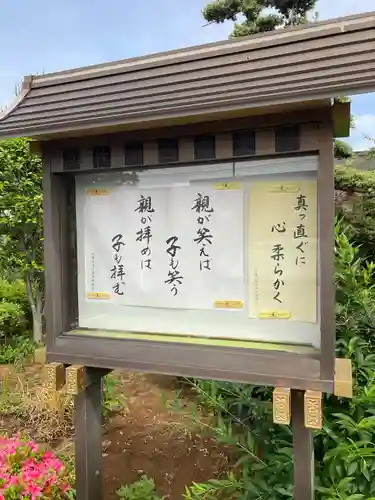 真っ直ぐに
心柔らかく
親が笑えば
子も笑う
親が拝めば
子も拝む